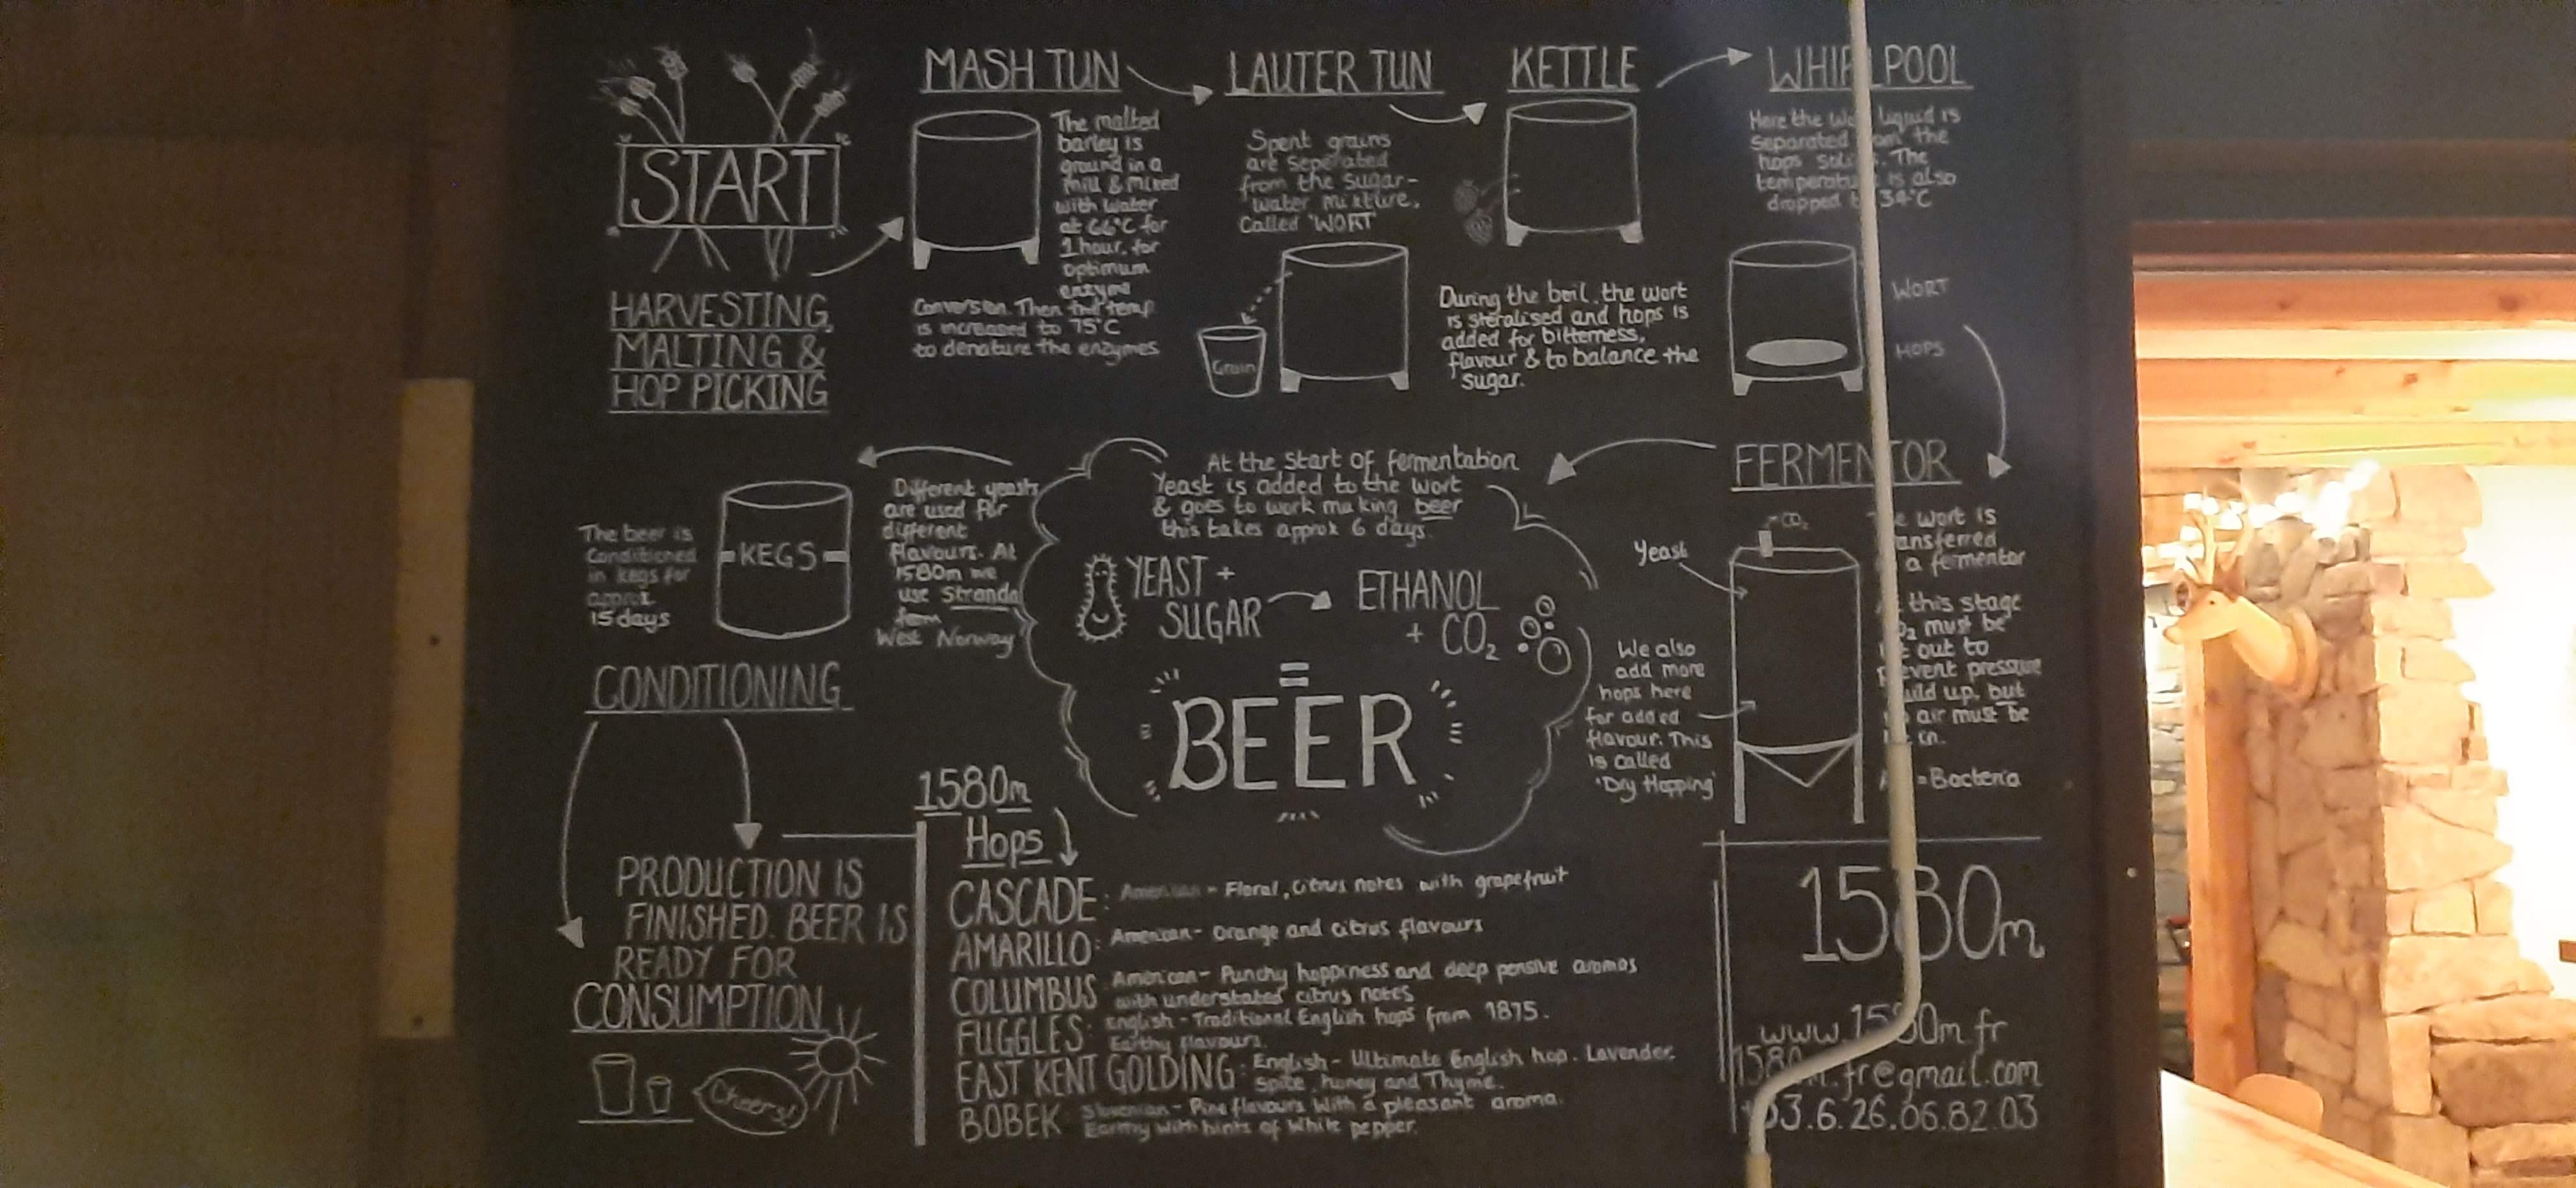 START
HARVESTING,
MALTING &
HOP PICKING
MASH TUN
The malted
barley is
ground in a
mill & mixed
with water
at 66°C for
1 hour, for
optimum
enzyme
Conversion. Then the temp
is increased to 75°C
to denature the enzymes
LAUTER TUN
Spent grains
are seperated
from the sugar-
water mixture,
Called 'WORT'
Grain
KETTLE
During the boil, the wort
is steralised and hops is
added for bitterness,
flavour & to balance the
sugar.
WHIRLPOOL
Here the liquid is
Separated from the
hops. The
temperature is also
dropped 34°C
WORT
HOPS
FERMENTOR
CO₂
Yeast
wort is
a fermentor
this stage
must be
out to
pressure
up, but
air must be
= Bacteria
We also
add more
hops here
for added
flavour. This
is called
'Dry Hopping'
At the Start of fermentation
Yeast is added to the wort
& goes to work making beer
this takes approx 6 days.
YEAST +
SUGAR
ETHANOL
+ CO₂
=
BEER
Different yeasts
are used for
different
flavours. At
1580m we
use Stranda
from
West Norway
KEGS
The beer is
Conditioned
in kegs for
approx
15 days
CONDITIONING
PRODUCTION IS
FINISHED. BEER IS
READY FOR
CONSUMPTION
Cheers!
1580m
Hops
CASCADE: American - Floral, citrus notes with grapefruit
AMARILLO: American - Orange and citrus flavours
COLUMBUS American - Punchy hoppiness and deep pensive aromas
with understated citrus notes
FUGGLES: English - Traditional English hops from 1875.
Earthy flavours.
EAST KENT GOLDING: English - Ultimate English hop. Lavender,
Spice, honey and Thyme.
BOBEK: Slovenian - Pine flavours with a pleasant aroma.
Earthy with hints of White pepper.
1580m
www.1580m.fr
1580m.fr@gmail.com
3.6.26.06.82.03